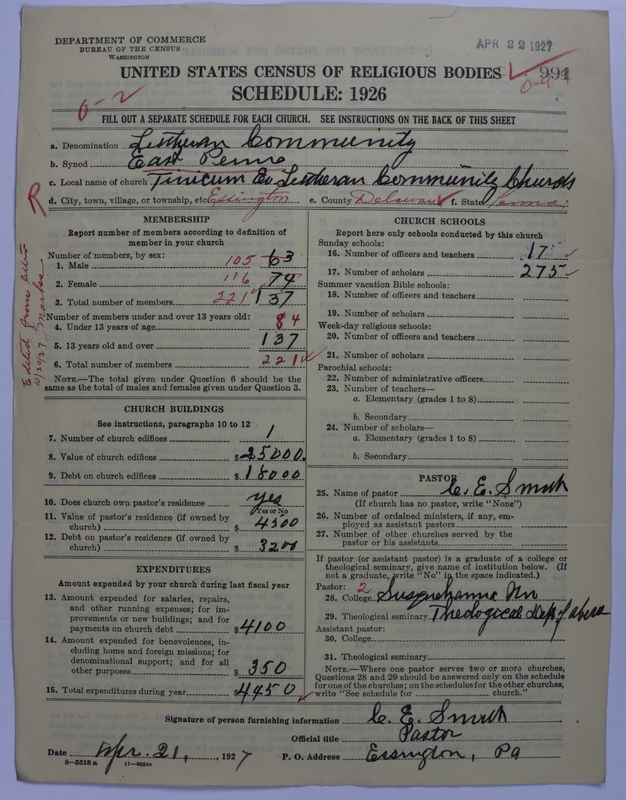 DEPARTMENT OF COMMERCE
BUREAU OF THE CENSUS
WASHINGTON
APR 22 1927
UNITED STATES CENSUS OF RELIGIOUS BODIES
991
SCHEDULE: 1926
0-2
FILL OUT A SEPARATE SCHEDULE FOR EACH CHURCH. SEE INSTRUCTIONS ON THE BACK OF THIS SHEET
a. Denomination Lutheran Community
b. Synod East Penna
c. Local name of church Tinicum Ev Lutheran Community Church
d. City, town, village, or township, etc Essington e. County Delaware f. State Penna.
MEMBERSHIP
Report number of members according to definition of member in your church
Number of members, by sex:
1. Male 105 63
2. Female 116 74
3. Total number of members 221 137
Number of members under and over 13 years old:
4. Under 13 years of age 84
5. 13 years old and over 137
6. Total number of members 221
NOTE.—The total given under Question 6 should be the same as the total of males and females given under Question 3.
Edited from letter
10/20/27
CHURCH BUILDINGS
See instructions, paragraphs 10 to 12
7. Number of church edifices 1
8. Value of church edifices $25000.
9. Debt on church edifices $18000
10. Does church own pastor's residence yes
Yes or No
11. Value of pastor's residence (if owned by church) $4500
12. Debt on pastor's residence (if owned by church) $3200
EXPENDITURES
Amount expended by your church during last fiscal year
13. Amount expended for salaries, repairs, and other running expenses; for improvements or new buildings; and for payments on church debt $4100
14. Amount expended for benevolences, including home and foreign missions; for denominational support; and for all other purposes $350
15. Total expenditures during year 4450
CHURCH SCHOOLS
Report here only schools conducted by this church
Sunday schools:
16. Number of officers and teachers 17
17. Number of scholars 275
Summer vacation Bible schools:
18. Number of officers and teachers
19. Number of scholars
Week-day religious schools:
20. Number of officers and teachers
21. Number of scholars
Parochial schools:
22. Number of administrative officers
23. Number of teachers—
a. Elementary (grades 1 to 8)
b. Secondary
24. Number of scholars—
a. Elementary (grades 1 to 8)
b. Secondary
PASTOR
25. Name of pastor C. E. Smith
(If church has no pastor, write "None")
26. Number of ordained ministers, if any, employed as assistant pastors
27. Number of other churches served by the pastor or his assistants
If pastor (or assistant pastor) is a graduate of a college or theological seminary, give name of institution below. (If not a graduate, write "No" in the space indicated.)
Pastor: 2
28. College Susquehanna Un
29. Theological seminary Theological Dep. of above
Assistant pastor:
30. College
31. Theological seminary
NOTE.—Where one pastor serves two or more churches, Questions 28 and 29 should be answered only on the schedule for one of the churches; on the schedules for the other churches, write "See schedule for church."
Signature of person furnishing information C. E. Smith
Official title Pastor
Date Apr. 21, 1927 P. O. Address Essington, Pa
S-5518 a